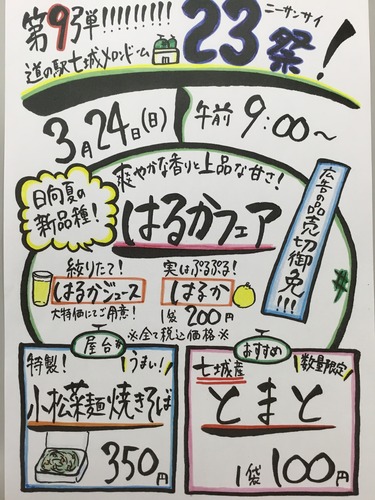 第9弾!!!!!!!!!
ニーサンサイ
道の駅七城メロンドーム
23祭!
3月24日(日)
午前9:00～
爽やかな香りと上品な甘さ!
日向夏の
新品種!
はるかフェア
広告の品売切御免!!!
絞りたて!
はるかジュース
大特価にてご用意!
実はぷるぷる!
はるか
1袋200円
※全て税込価格※
屋台
特製!
うまい!
小松菜麺焼きそば
350円
おすすめ
七城産
数量限定
とまと
1袋100円